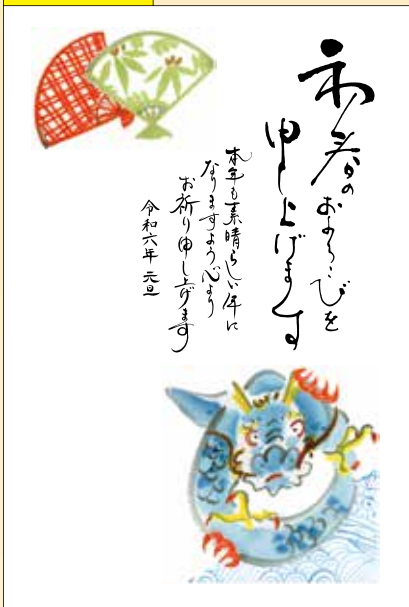 初春のおよろこびを
申し上げます
本年も素晴らしい年に
なりますよう心より
お祈り申し上げます
令和六年 元旦